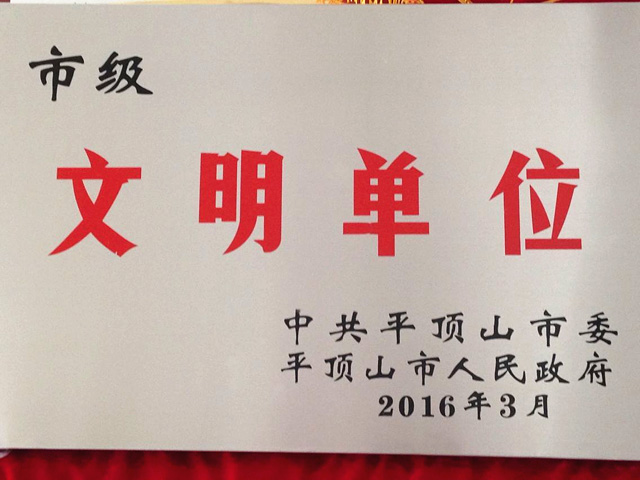 市级
文明单位
中共平顶山市委
平顶山市人民政府
2016年3月